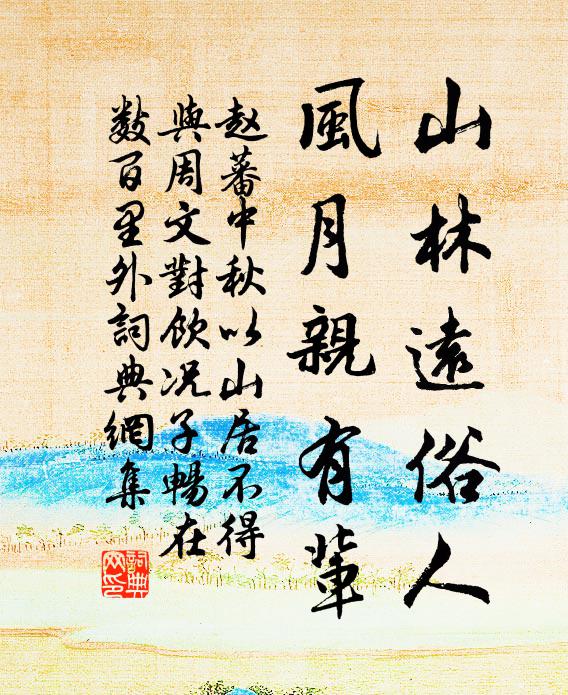 山林遠俗人
風月親有輩
赵蕃中秋以山居不得
與周文對飲況子暢在
數百里外詞典網集
詞典
网印